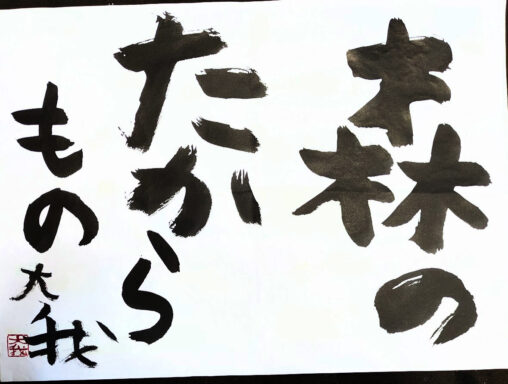 森の
たから
もの
大我